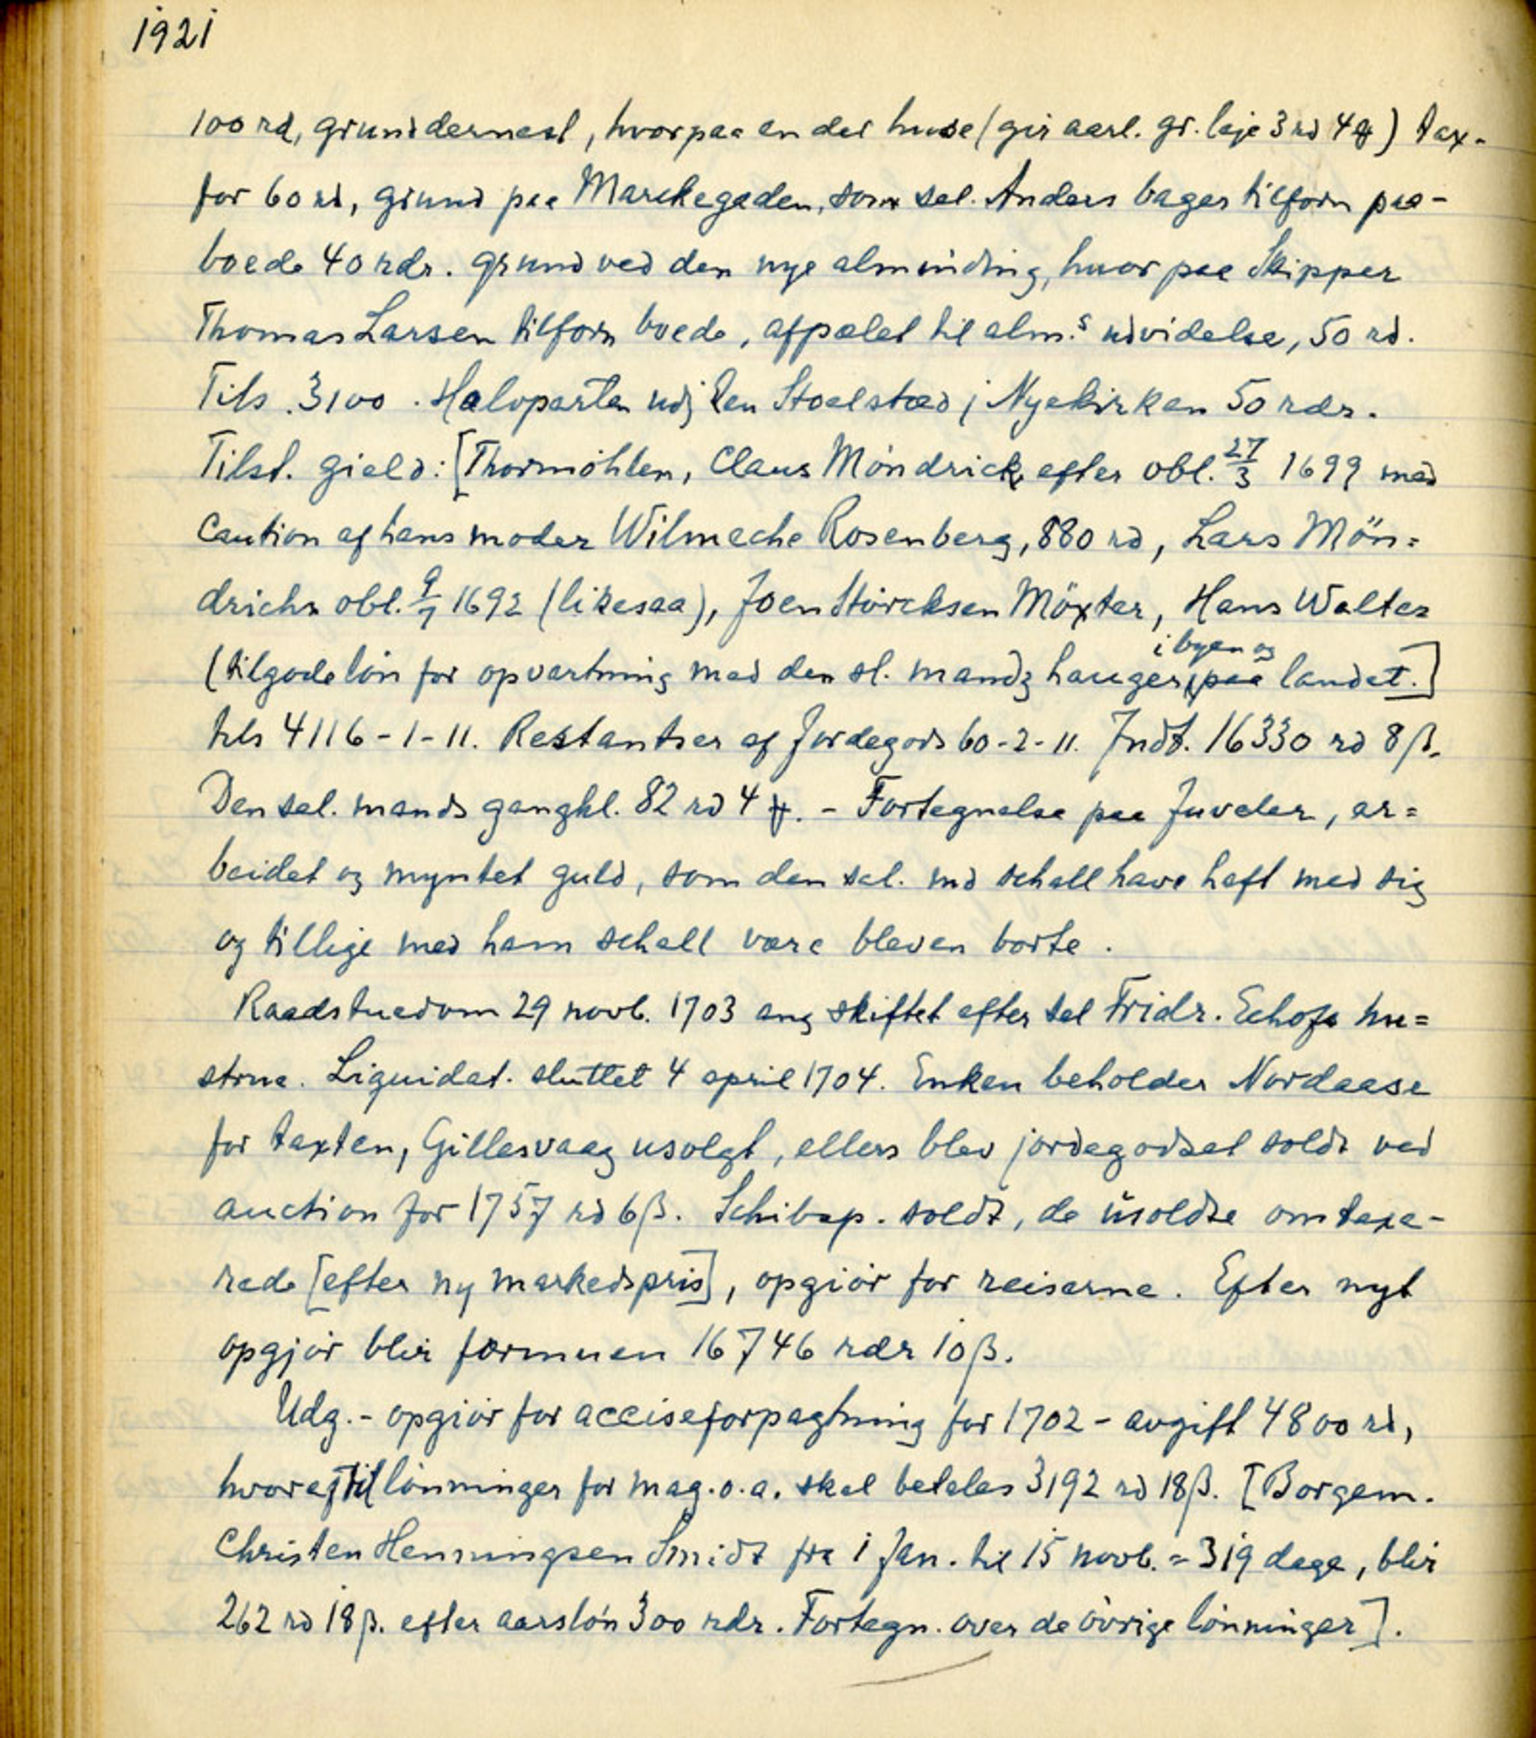 1921
100 rd, grund dernest, hvorpaa en del huse (gir aarl. gr. leje 3 rd 4 ) tax-
for 60 rd, grund paa Marckegaden, som sal. Anders bager tilforn paa-
boede 40 rdr. grund ved den nye alminding, hvor paa Skipper
Thomas Larsen tilforn boede, afpælet til alm.s udvidelse, 50 rd.
Tils. 3100. Halvparten udj den Stoelstæd j Nyekirken 50 rdr.
Tilst. gield: [Thormöhlen, Claus Möndrick efter obl. 27/3 1699 med
Caution af hans moder Wilmeche Rosenberg, 880 rd, Lars Mön=
drichs obl. 9/7 1692 (likesaa), Joen Störcksen Möxter, Hans Walter
(tilgode løn for opvartning med den sl. mandz hauger i byen og paa landet.]
tils 4116-1-11. Restantser af Jordegods 60-2-11. Indt. 16330 rd 8 β.
Den sal. mands gangkl. 82 rd 4 . - Fortegnelse paa Juveler, ar=
beidet og myntet guld, som den sal. md schall have haft med sig
og tillige med ham schall være bleven borte.
Raadstuedom 29 novb. 1703 ang skiftet efter sal Fridr. Echofs hu=
strue. Liquidat. sluttet 4 april 1704. Enken beholder Nordaase
for taxten, Gillesvaag usolgt, ellers blev jordegodset soldt ved
auction for 1757 rd 6 β. Schibsp. soldt, de usoldte omtaxe-
rede [efter ny markedspris], opgiør for reiserne. Efter nyt
opgjør blir formuen 16746 rdr 10 β.
Udg. - opgiør for acciseforpagtning for 1702 - avgift 4800 rd,
hvoraf til lønninger for mag. o. a. skal betales 3192 rd 18 β. [Borgem.
Christen Henningsen Smidt fra 1 Jan. til 15 novb. = 319 dage, blir
262 rd 18 β. efter aarsløn 300 rdr. Fortegn. over de øvrige lønninger].